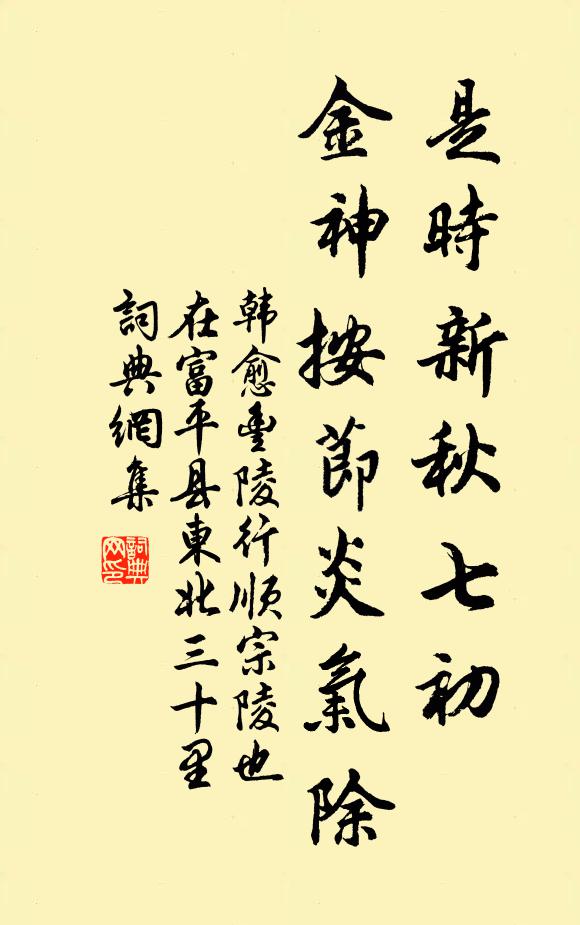 是時新秋七初
金神按節炎氣除
韩愈豐陵行順宗陵也
在富平县東北三十里
詞典網集
詞典网印